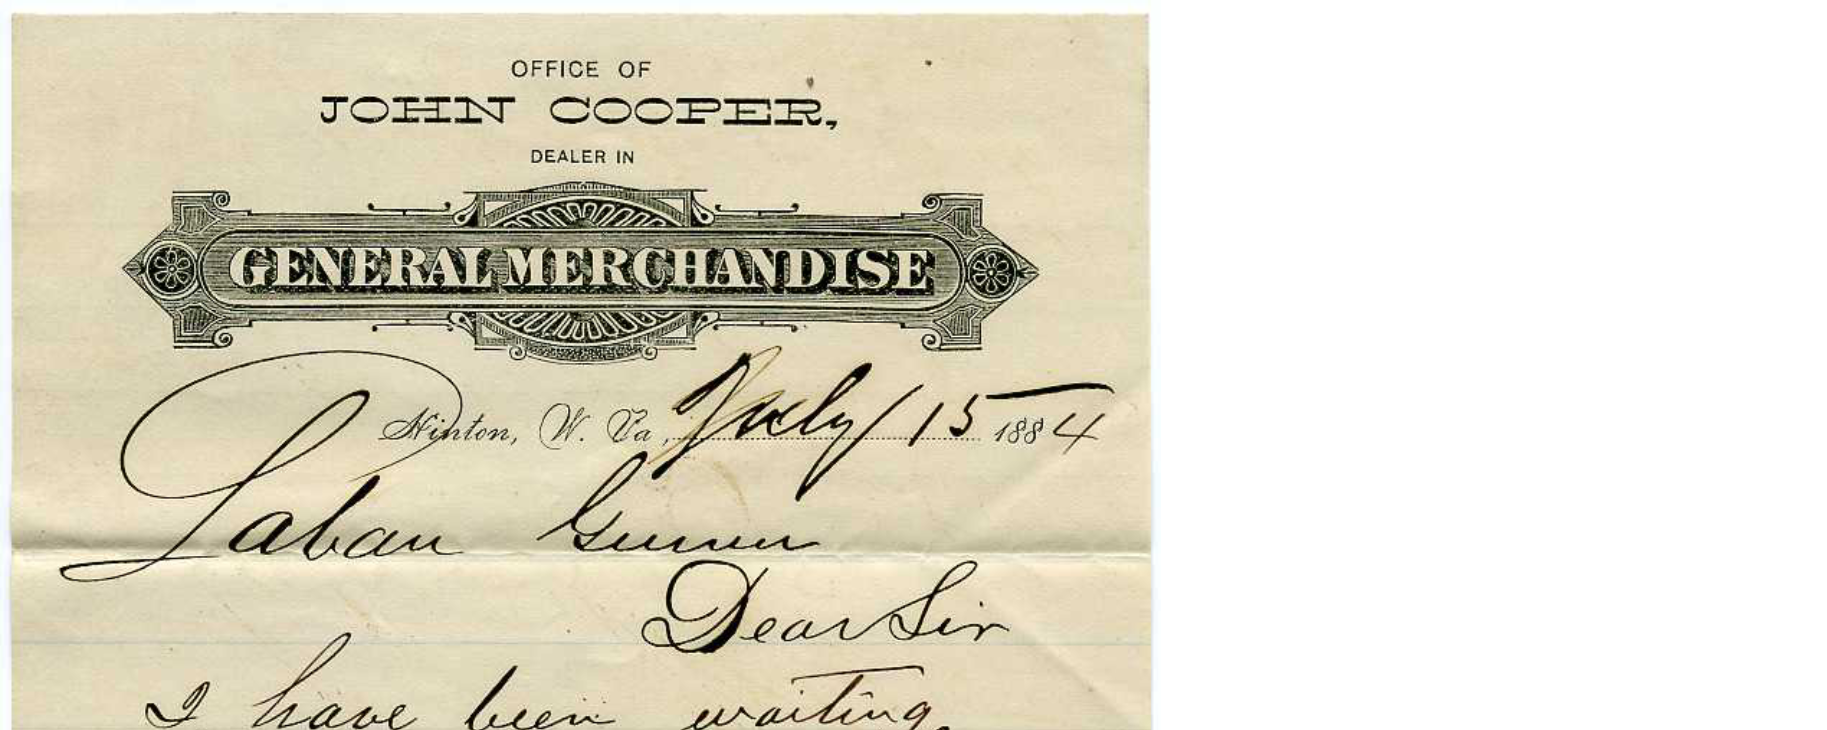 OFFICE OF
JOHN COOPER,
DEALER IN
GENERAL MERCHANDISE
Hinton, W. Va, July 15 1884
Laban
Dear Sir
I have been waiting